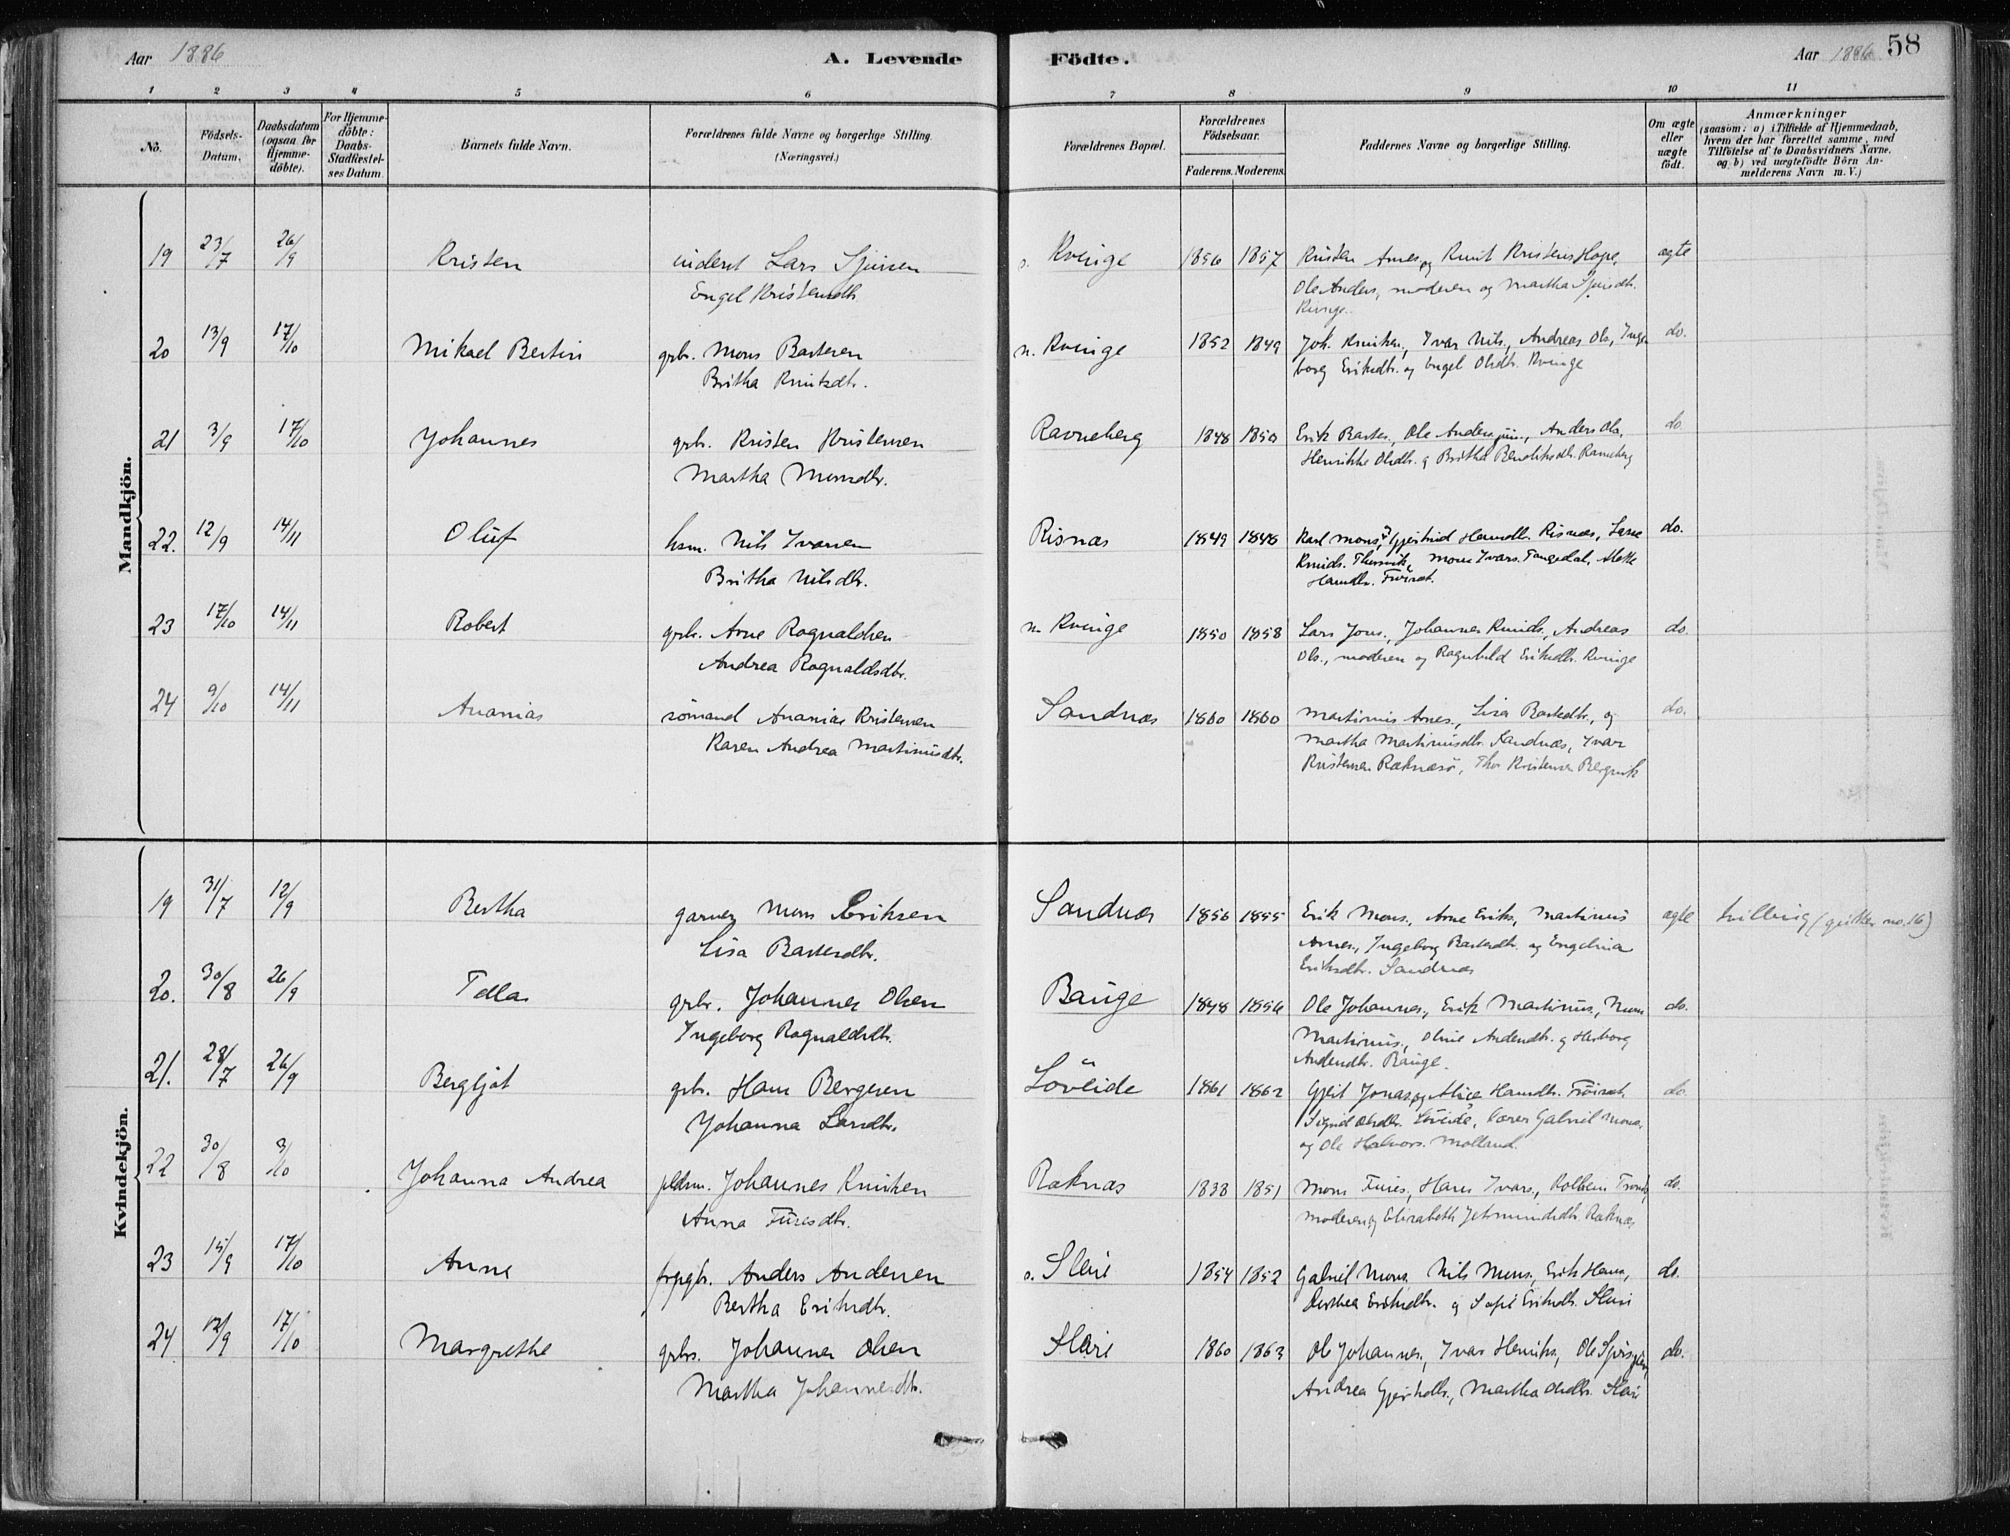 Aar 1886
A. Levende
Födte.
Aar 1886
58
1 2 3 4 5 6 7 8 9 10 11
No.
Födsels-Datum.
Daabsdatum (ogsaa for Hjemme-döbte).
For Hjemme-döbte: Daabs-Stadfæstel-ses Datum
Barnets fulde Navn.
Forældrenes fulde Navne og borgerlige Stilling. (Næringsvei.)
Forældrenes Bopæl.
Forældrenes Födselsaar.
Faderens. Moderens.
Faddernes Navne og borgerlige Stilling.
Om ægte eller uægte födt.
Anmærkninger
(saasom: a) i Tilfælde af Hjemmedaab,
hvem der har forrettet samme, med
Tilföielse af to Daabsvidners Navne.
og b) ved uægtefödte Börn An-
melderens Navn m. V.)
Mandkjön.
19 23/7 26/9 Kristen inderst Lars Sjursen s. Kvinge 1856 1857 Kristen Arnes. og Knut Kristens Hope, ægte
Engel Kristensdtr. Ole Anders., moderen og Martha Sjursdtr.
Kvinge.
20 13/9 17/10 Mikael Bertin grbr. Mons Bastesen n. Kvinge 1852 1849 Joh. Knutsen, Ivar Nils., Andreas Ols., Inge- do.
Britha Knutsdtr. borg Eriksdtr. og Engel Olsdtr. Kvinge
21 3/9 17/10 Johannes grbr. Kristen Kristensen Ravneberg 1848 1850 Erik Bastes., Ole Anders. jun., Anders Ols., do.
Martha Monsdtr. Henrikke Olsdtr. og Britha Bendiksdtr. Ravneberg
22. 12/9 14/11 Oluf hsm. Nils Ivarsen Risnæs 1849 1848 Karl Mons., Gjertrud Hansdtr. Risnæs, Lasse do.
Britha Nilsdtr. Knuds. Mons Ivars. Tangedal, Mette
Hansdtr.
23 17/10 14/11 Robert grbr. Arne Rognaldsen n. Kvinge 1850 1858 Lars Jons., Johannes Knuds., Andreas do.
Andrea Rognaldsdtr. Ols., moderen og Ragnhild Eriksdtr. Kvinge
24 9/10 14/11 Ananias sömand Ananias Kristensen Sandnæs 1860 1860 Martinus Arnes., Lisa Bastesdtr., og do.
Karen Andrea Martinusdtr. Martha Martinusdtr. Sandnæs, Ivar
Kristensen Ræknesö, Thor Kristensen Bergsvik
Kvindekjön.
19 31/7 12/9 Bertha garver Mons Eriksen Sandnæs 1856 1855 Erik Mons., Arne Eriks., Martinus ægte tvilling (gutten no. 16)
Lisa Bastesdtr. Arnes., Ingeborg Bastesdtr. og Engelina
Eriksdtr. Sandnæs
20. 30/8 26/9 Tella grbr. Johannes Olsen Bauge 1848 1856 Ole Johannes., Erik Martinus., Mons do.
Ingeborg Rognaldsdtr. Martinus., Oline Andersdtr. og Herborg
Andersdtr. Bauge.
21. 28/7 26/9 Bergljot grbr. Hans Bergesen Löveide 1861 1862 Gjert Jonas. og Alice Hansdtr. do.
Johanna Larsdtr. Sigrid Olsdtr. Lövede, lærer Gabriel Mons.
og Ole Halvors. Molland.
22 30/8 3/10 Johanna Andrea Johannes Knutsen Ræknæs 1838 1851 Mons Fures., Hans Ivars., Kolbein Tronds., do.
Anna Furesdtr. moderen og Elizabeth Jetmundsdtr. Ræknæs
23 15/9 17/10 Anne Anders Andersen s. Sleire 1854 1852 Gabriel Mons. Nils Mons., Erik Hans., do.
Bertha Eriksdtr. Dorthea Eriksdtr. og Sofie Eriksdtr. Sleire
24 12/9 17/10 Margrethe grbrs. Johannes Olsen Sleire 1860 1863 Ole Johannes., Ivar Henriks., Ole Sjurs. do.
Martha Johannesdtr. Andrea Gjertsdtr., Martha Olsdtr. Sleire